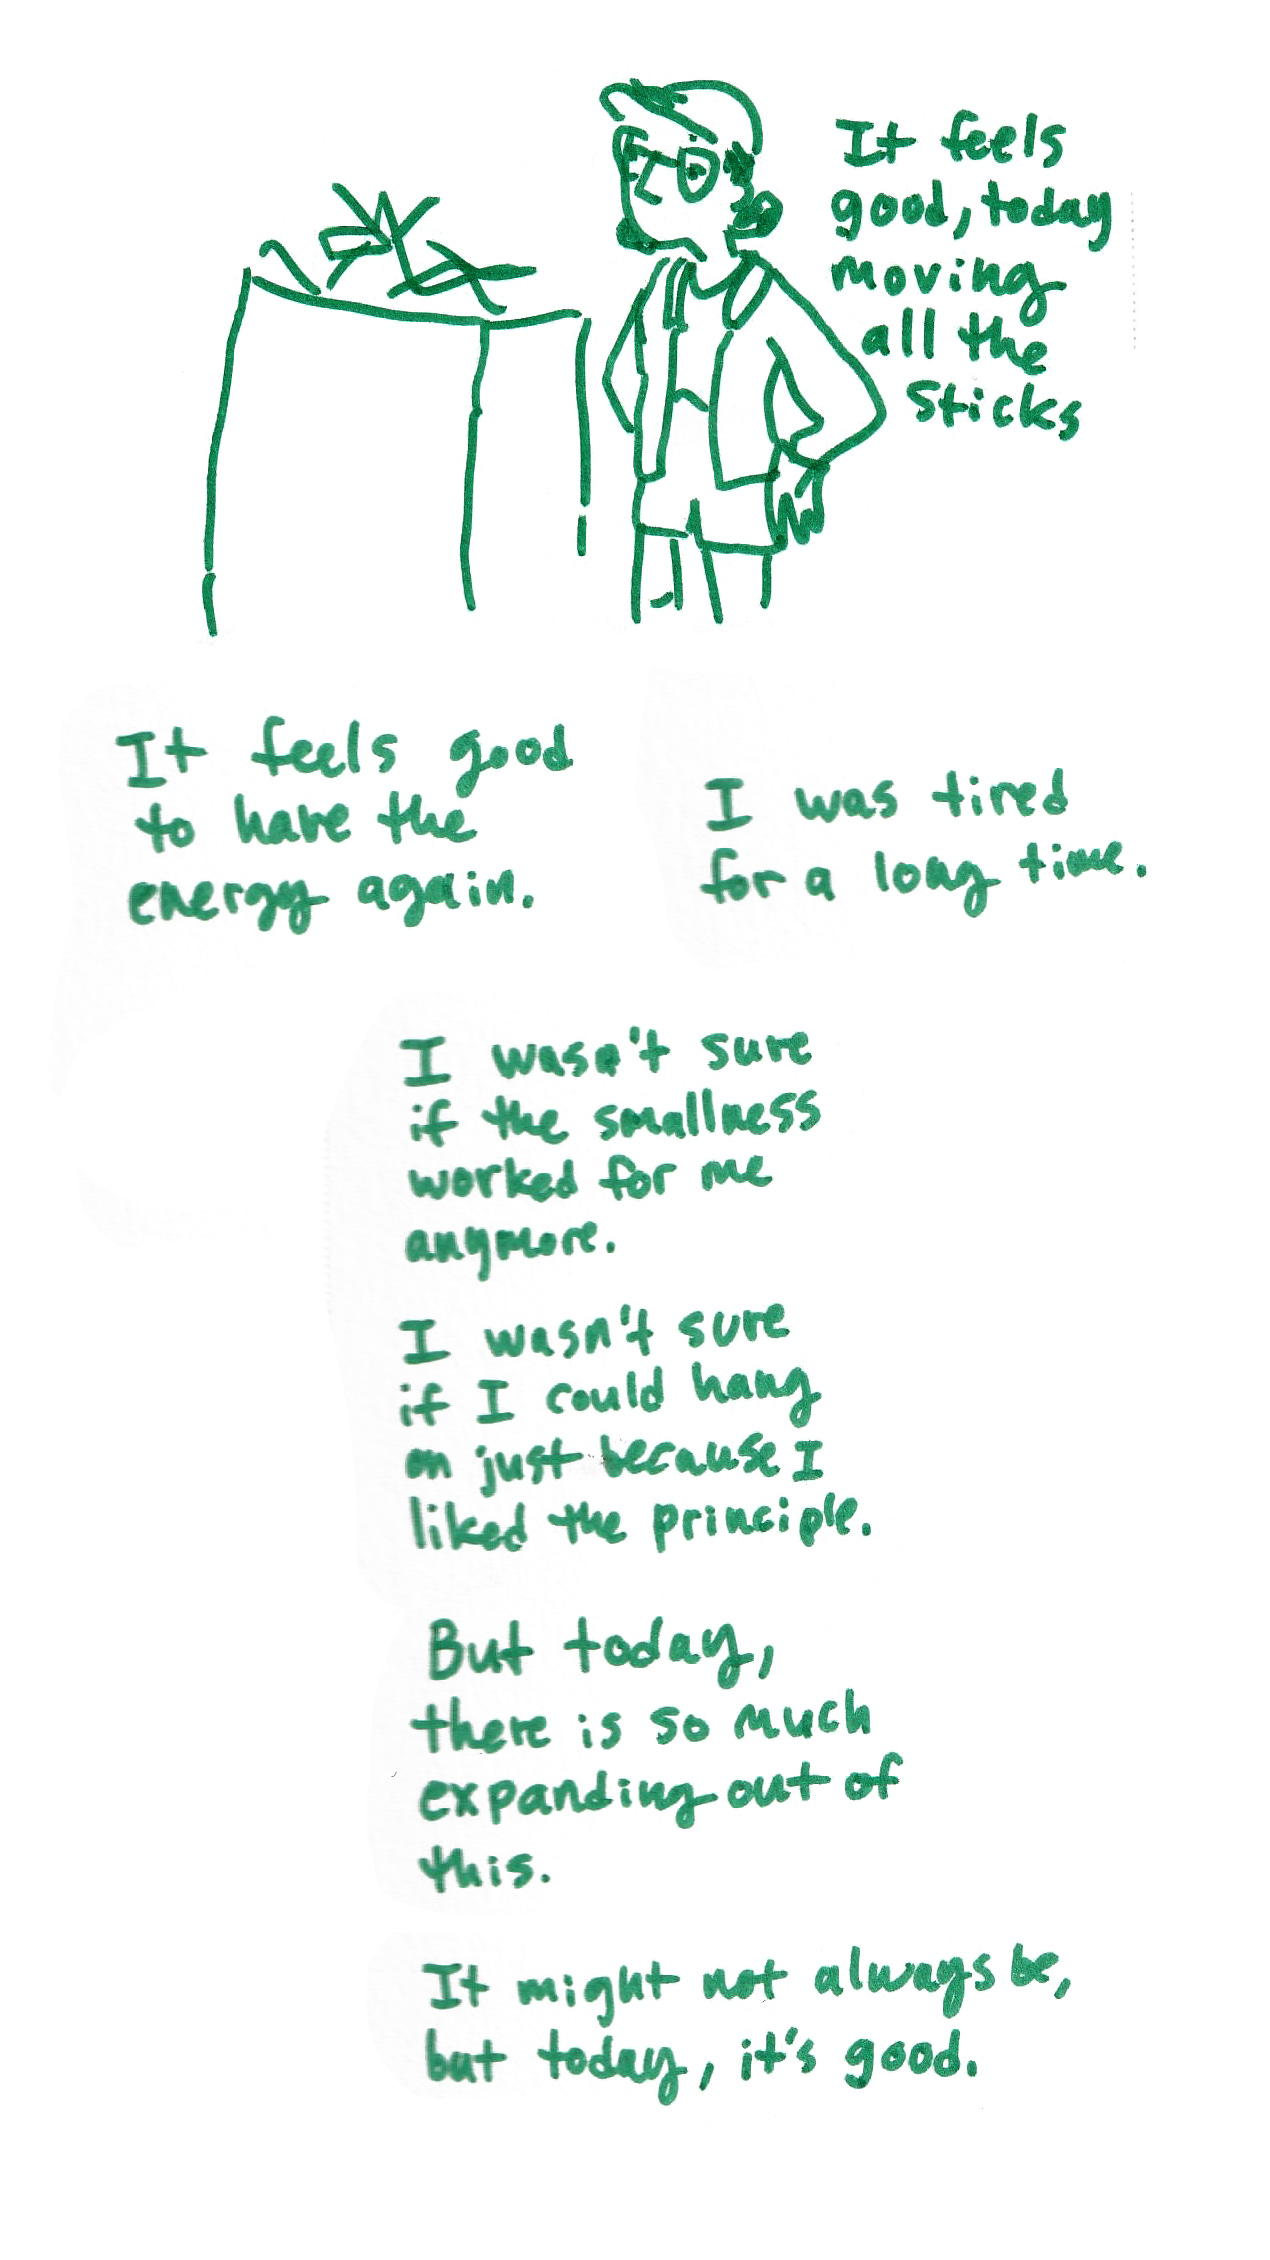 It feels
good, today
moving
all the
sticks
It feels good
to have the
energy again.
I was tired
for a long time.
I wasn't sure
if the smallness
worked for me
anymore.
I wasn't sure
if I could hang
on just because I
liked the principle.
But today,
there is so much
expanding out of
this.
It might not always be,
but today, it's good.